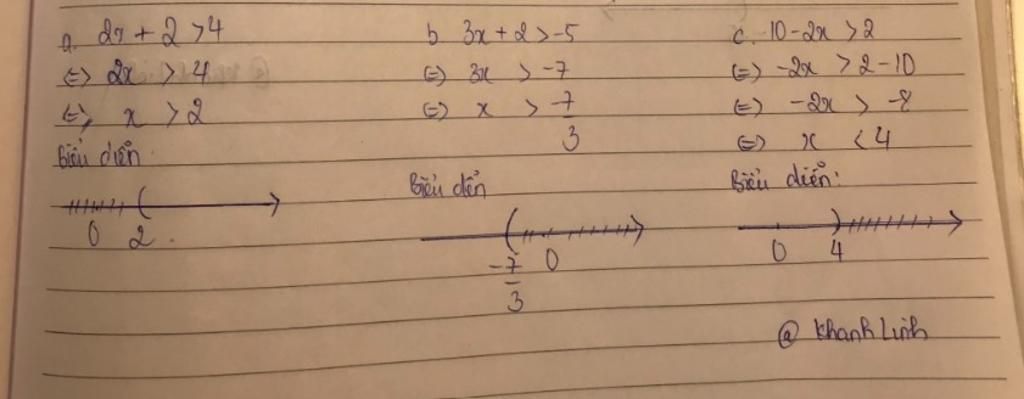 a. 2x + 2 > 4
⇔ 2x > 4
⇔ x > 2
Biểu diễn
0 2
b 3x + 2 > -5
⇔ 3x > -7
⇔ x > -7
3
Biểu diễn
-7 0
3
c. 10 - 2x > 2
⇔ -2x > 2 - 10
⇔ -2x > -8
⇔ x < 4
Biểu diễn:
0 4
@ Khanh Linh